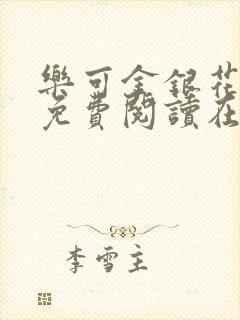 樂可金銀花
免費閱讀在
李雪主